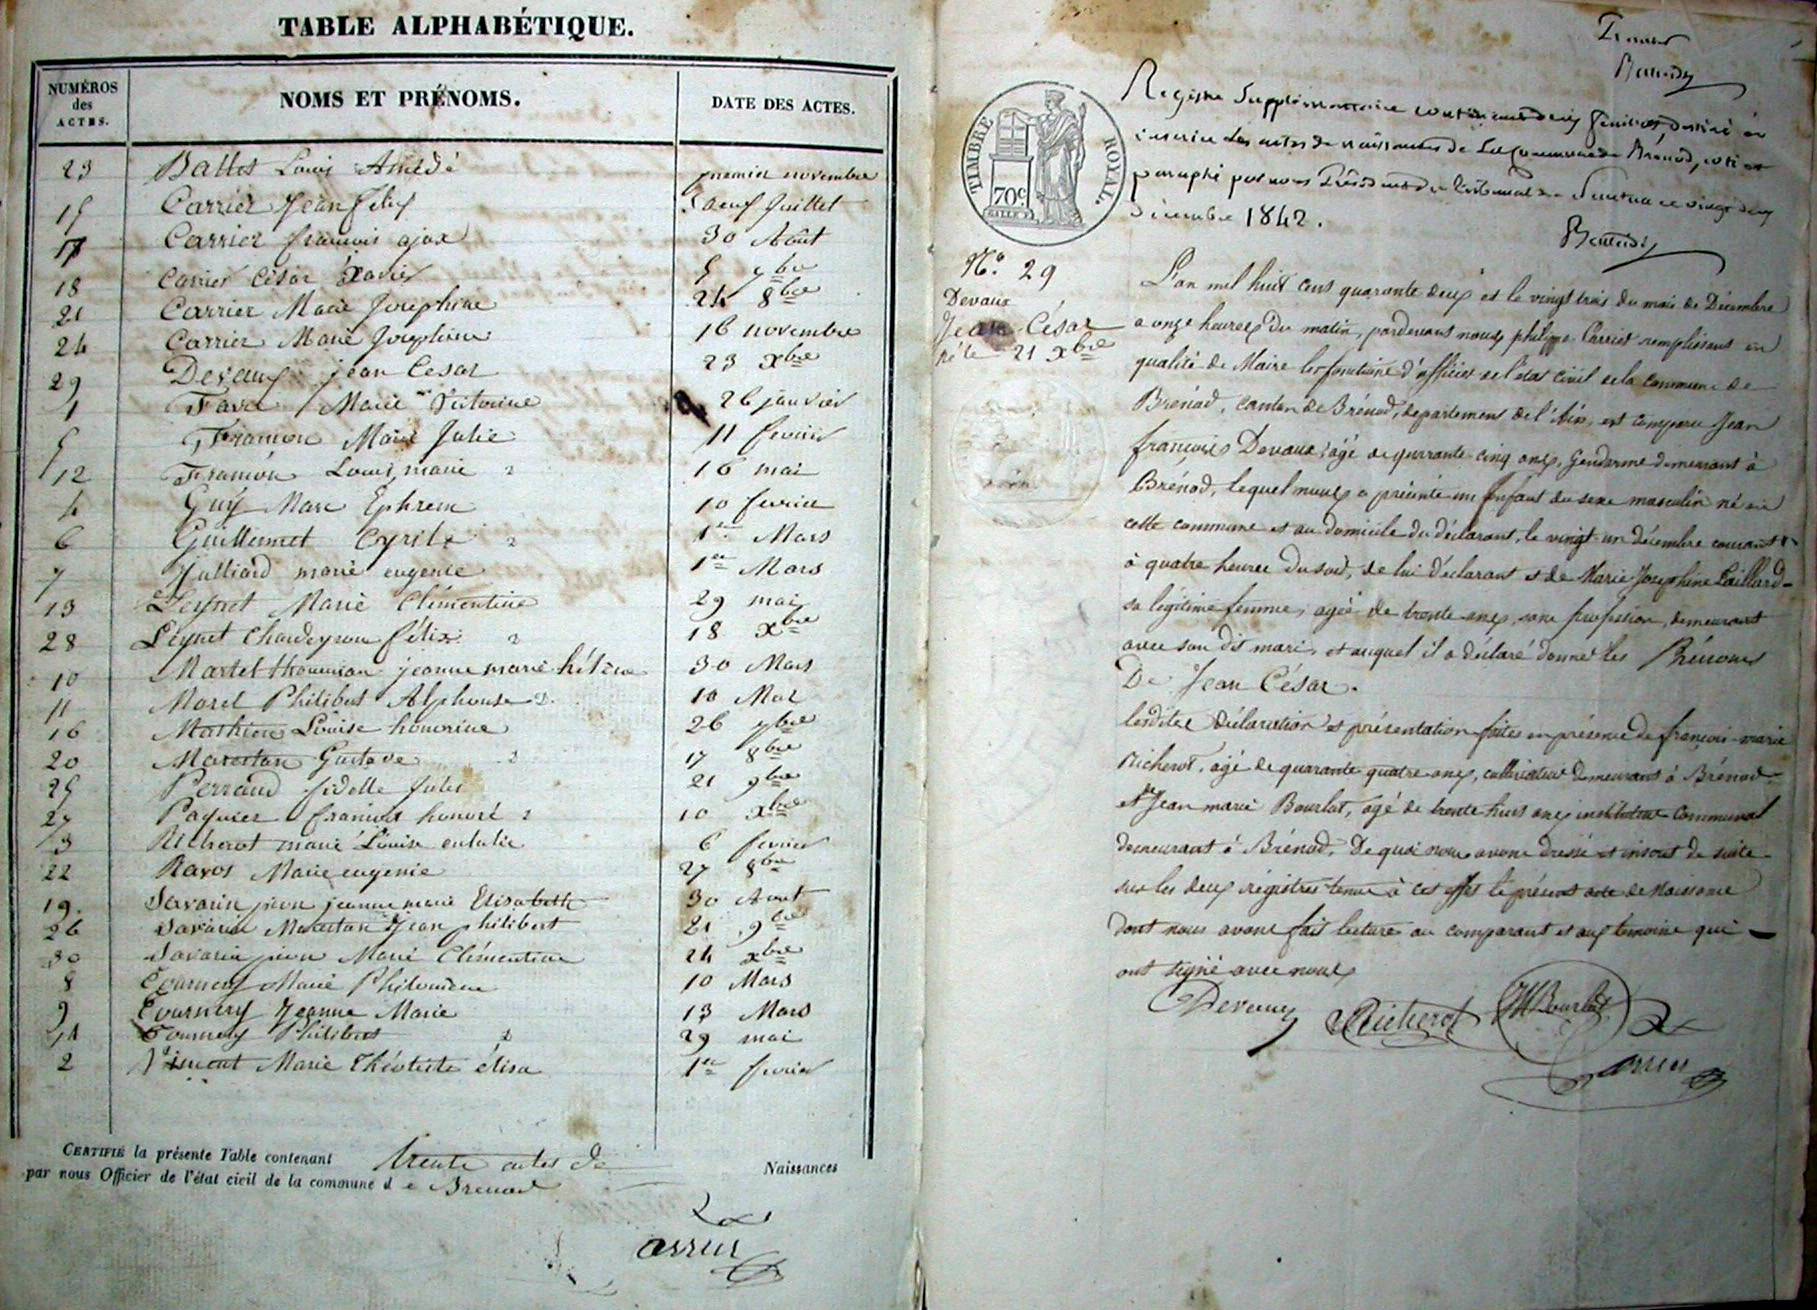 TABLE ALPHABÉTIQUE.
NUMÉROS des ACTES.
NOMS ET PRÉNOMS.
DATE DES ACTES.
23 Ballet Louis Amédé premier novembre
15 Carrier Jean Félix neuf Juillet
17 Carrier françois ajax 30 Août
18 Carrier César Xavier 5 7bre
21 Carrier Marie Joséphine 24 8bre
24 Carrier Marie Joséphine 16 novembre
29 Devaux jean César 23 Xbre
1 Favre Marie Victorine 26 janvier
5 Framon Marie Julie 11 fevrier
12 Framon Louis marie 16 mai
4 Guy Marc Ephrem 10 fevrier
6 Guillermet Cyrile 1er Mars
7 Julliard marie eugenie 1er Mars
13 Leynet Marie Clémentine 29 mai
28 Leynet Chardeyron félix 18 Xbre
10 Martel thomeman jeanne marie hélène 30 Mars
11 Morel Philibert Alphonse 10 Mai
16 Mathieu Louise honorine 26 7bre
20 Maratan Gustave 17 8bre
25 Perraud fidelle Jules 21 9bre
27 Paquier françois honoré 10 Xbre
3 Richerot marie Louise eulalie 6 fevrier
22 Ravos Marie eugenie 27 8bre
19. Savarin pion jeanne marie Elisabeth 30 Aout
26 Savarin Maratan Jean philibert 21 9bre
30 Savarin pion Marie Clémentine 24 Xbre
8 Tournery Marie Philomène 10 Mars
9 Tournery Jeanne Marie 13 Mars
14 Tournery Philibert 29 mai
2 Vincent Marie Théotiste élisa 1er fevrier
CERTIFIÉ la présente Table contenant trente actes de Naissances
par nous Officier de l'état civil de la commune de Brenod
Carrier
TIMBRE ROYAL
70c
Registre Supplémentaire contenant deux feuillets destiné à
inscrire les actes de naissances de la Commune de Brénod, coté et
paraphé par nous Président du Tribunal de Nantua ce vingt deux
Décembre 1842.
No. 29
Devaux
Jean-César
né le 21 Xbre
L'an mil huit cent quarante deux et le vingt trois du mois de Décembre
a onze heures du matin, pardevant nous philippe Carrier remplissant en
qualité de Maire les fonctions d'officier de l'état civil de la commune de
Brénod, canton de Brénod, departement de l'Ain, est comparu Jean
françois Devaux, âgé de quarante cinq ans, Gendarme demeurant à
Brénod, lequel nous a présenté un enfant du sexe masculin né en
cette commune et au domicile du déclarant, le vingt un décembre courant
à quatre heures du soir, de lui déclarant et de Marie Josephine Paillard
sa légitime femme, agée de trente ans, sans profession, demeurant
avec son dit mari, et auquel il a déclaré donner les Prénoms
De Jean César.
lesdites déclaration et présentation faites en présence de françois-marie
Richerot, agé de quarante quatre ans, cultivateur demeurant à Brénod
et Jean marie Bourlot, agé de trente huit ans instituteur communal
demeurant à Brénod, De quoi nous avons dressé et inscrit de suite
sur les deux régistres tenus à cet effet le présent acte de Naissance
dont nous avons fait lecture au comparant et aux temoins qui
ont signé avec nous
Devaux Richerot JM Bourlot
Carrier